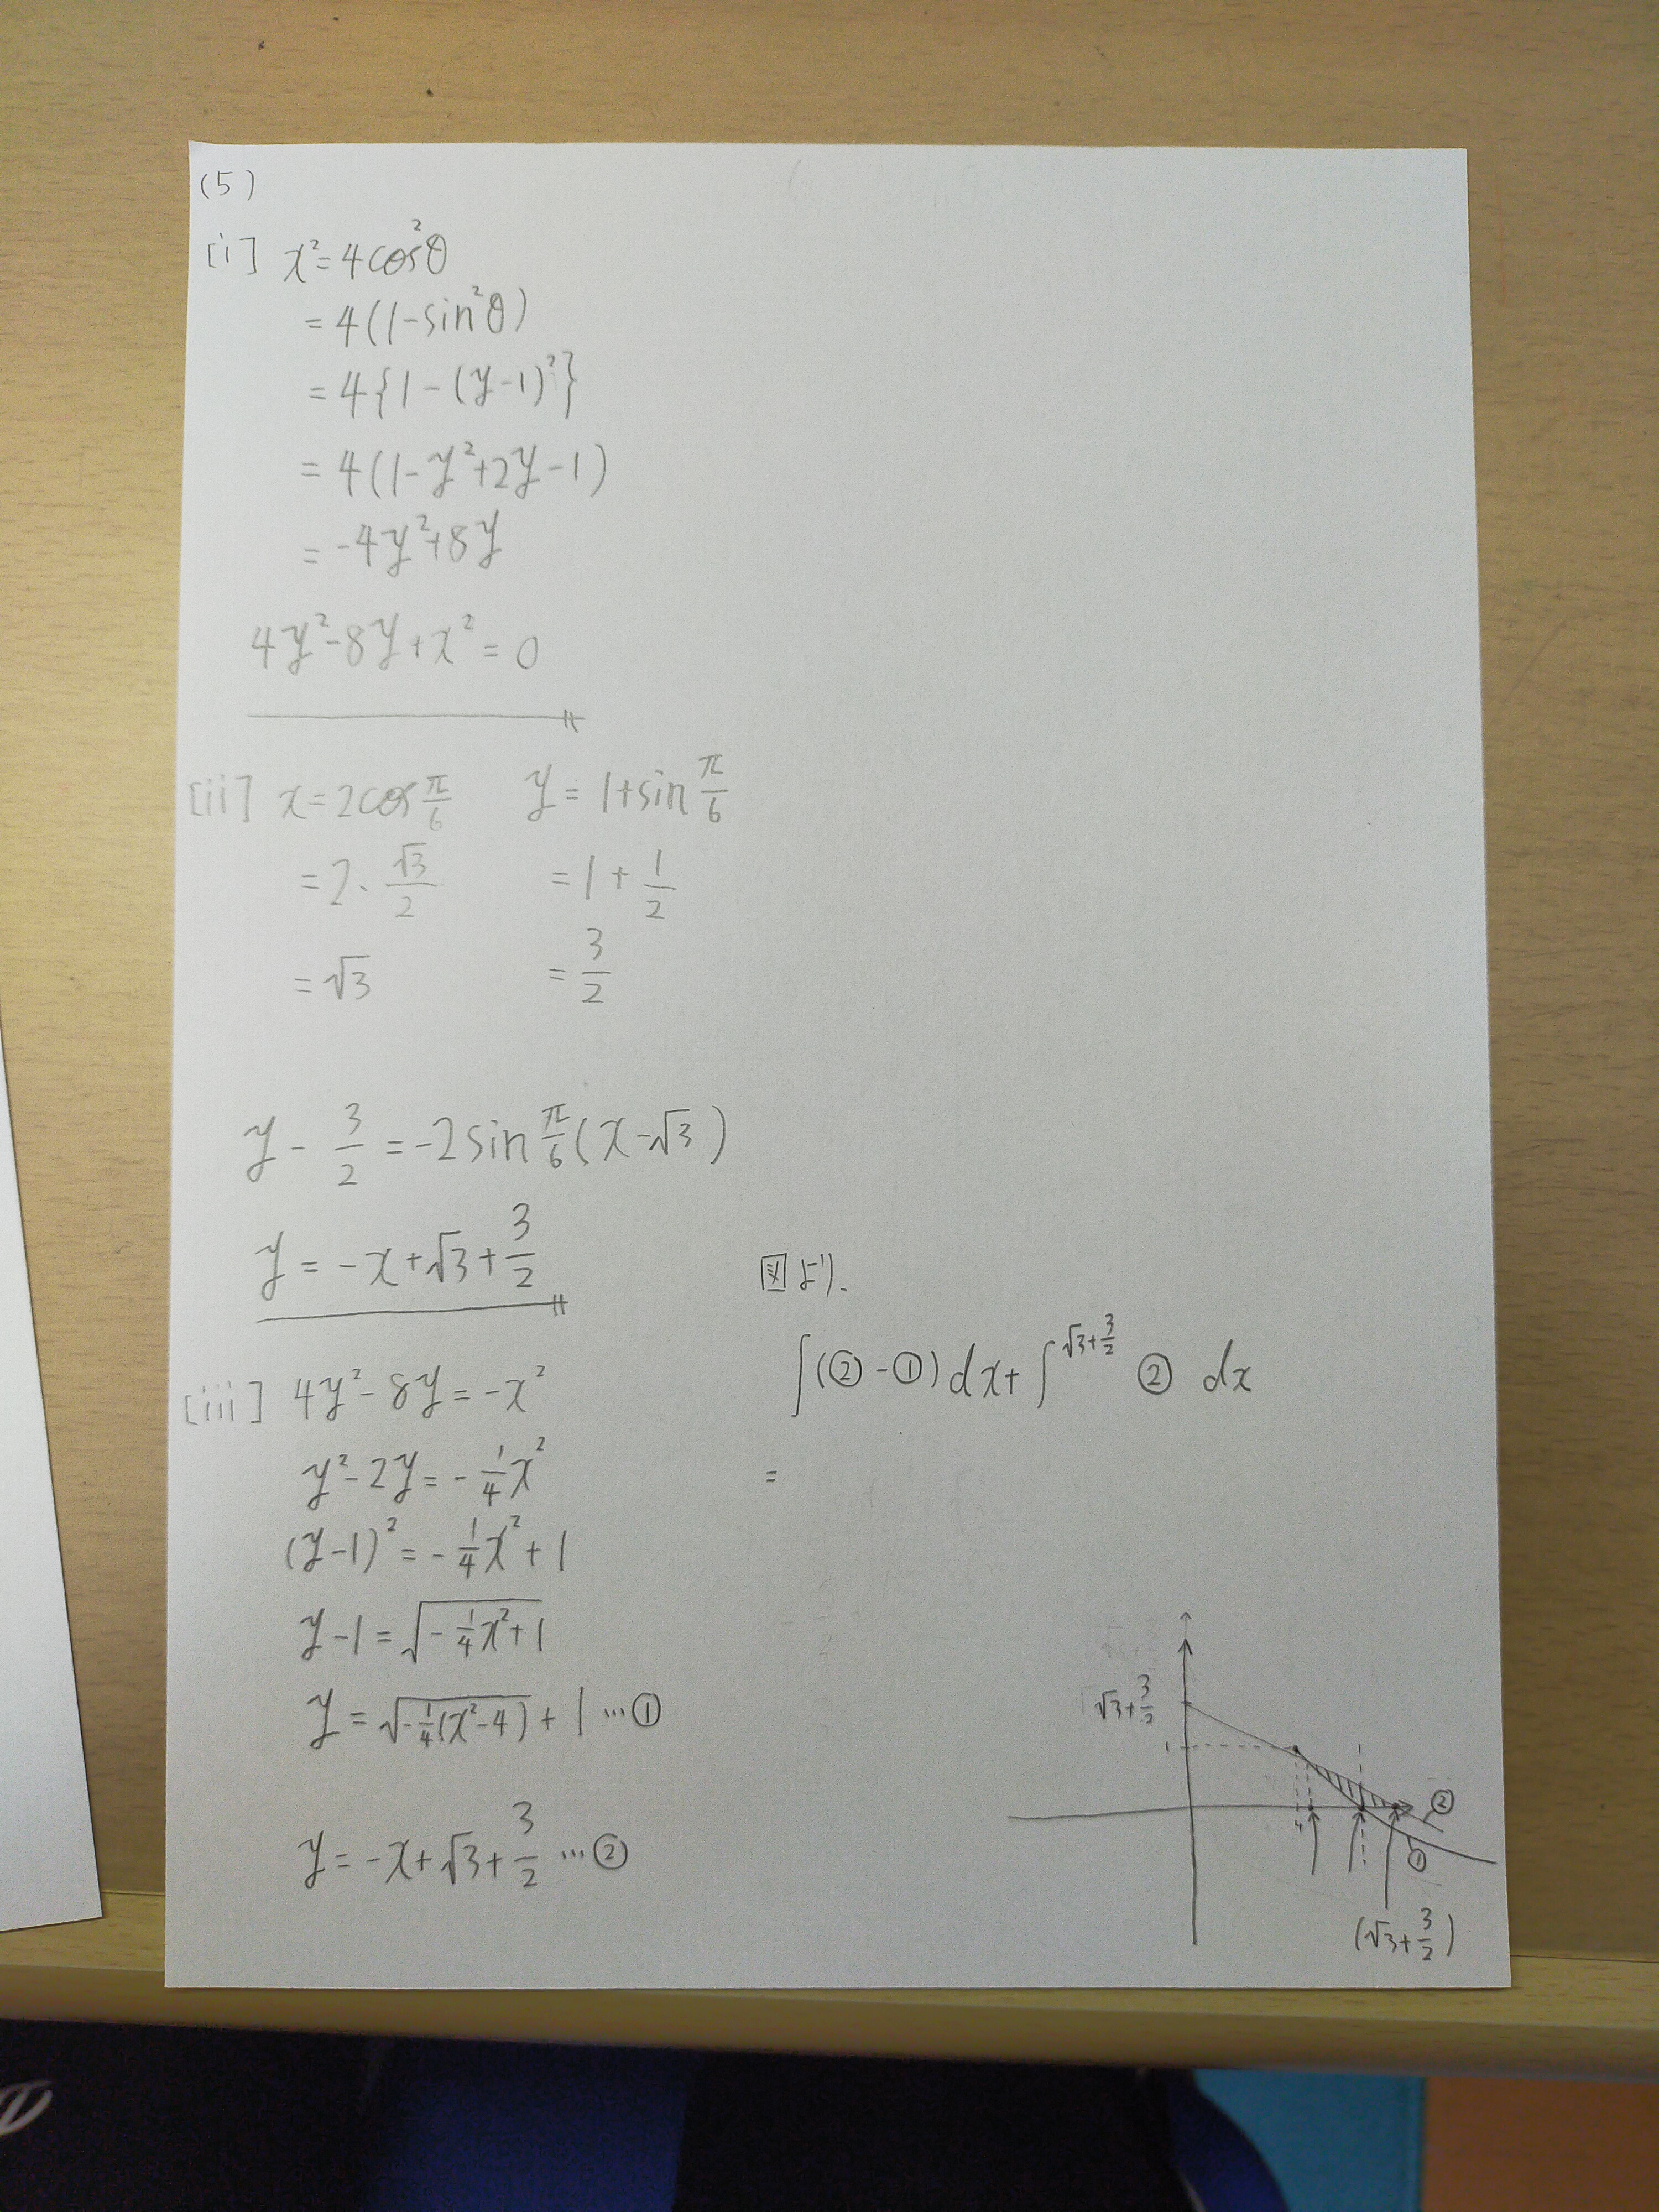 (5)
[i] x²=4cos²θ
=4(1-sin²θ)
=4{1-(y-1)²}
=4(1-y²+2y-1)
=-4y²+8y
4y²-8y+x²=0
[ii] x=2cos π/6 y=1+sin π/6
=2・√3/2 =1+1/2
=√3 =3/2
y-3/2=-2sin π/6(x-√3)
y=-x+√3+3/2
[iii] 4y²-8y=-x²
y²-2y=-1/4x²
(y-1)²=-1/4x²+1
y-1=√(-1/4x²+1)
y=√(-1/4(x²-4))+1…①
y=-x+√3+3/2…②
図より、
∫(②-①)dx+∫^(√3+3/2) ② dx
=
√3+3/2
1
②
①
(√3+3/2)